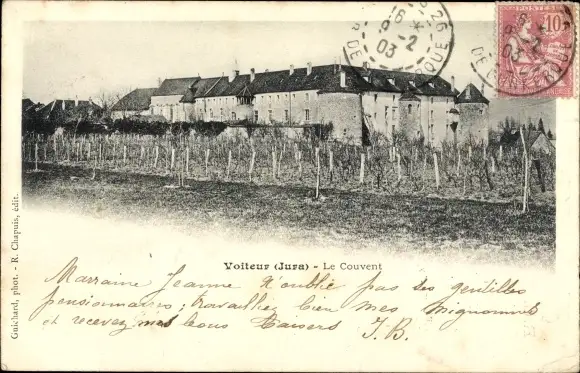 POSTES
10
26
03
Guichard, phot. - R. Chapuis, édit.
Voiteur (Jura) - Le Couvent
Marraine Jeanne n'oublie pas ses gentilles
pensionnaires, travaillez bien mes mignonnes
et recevez mes bons baisers J. B.